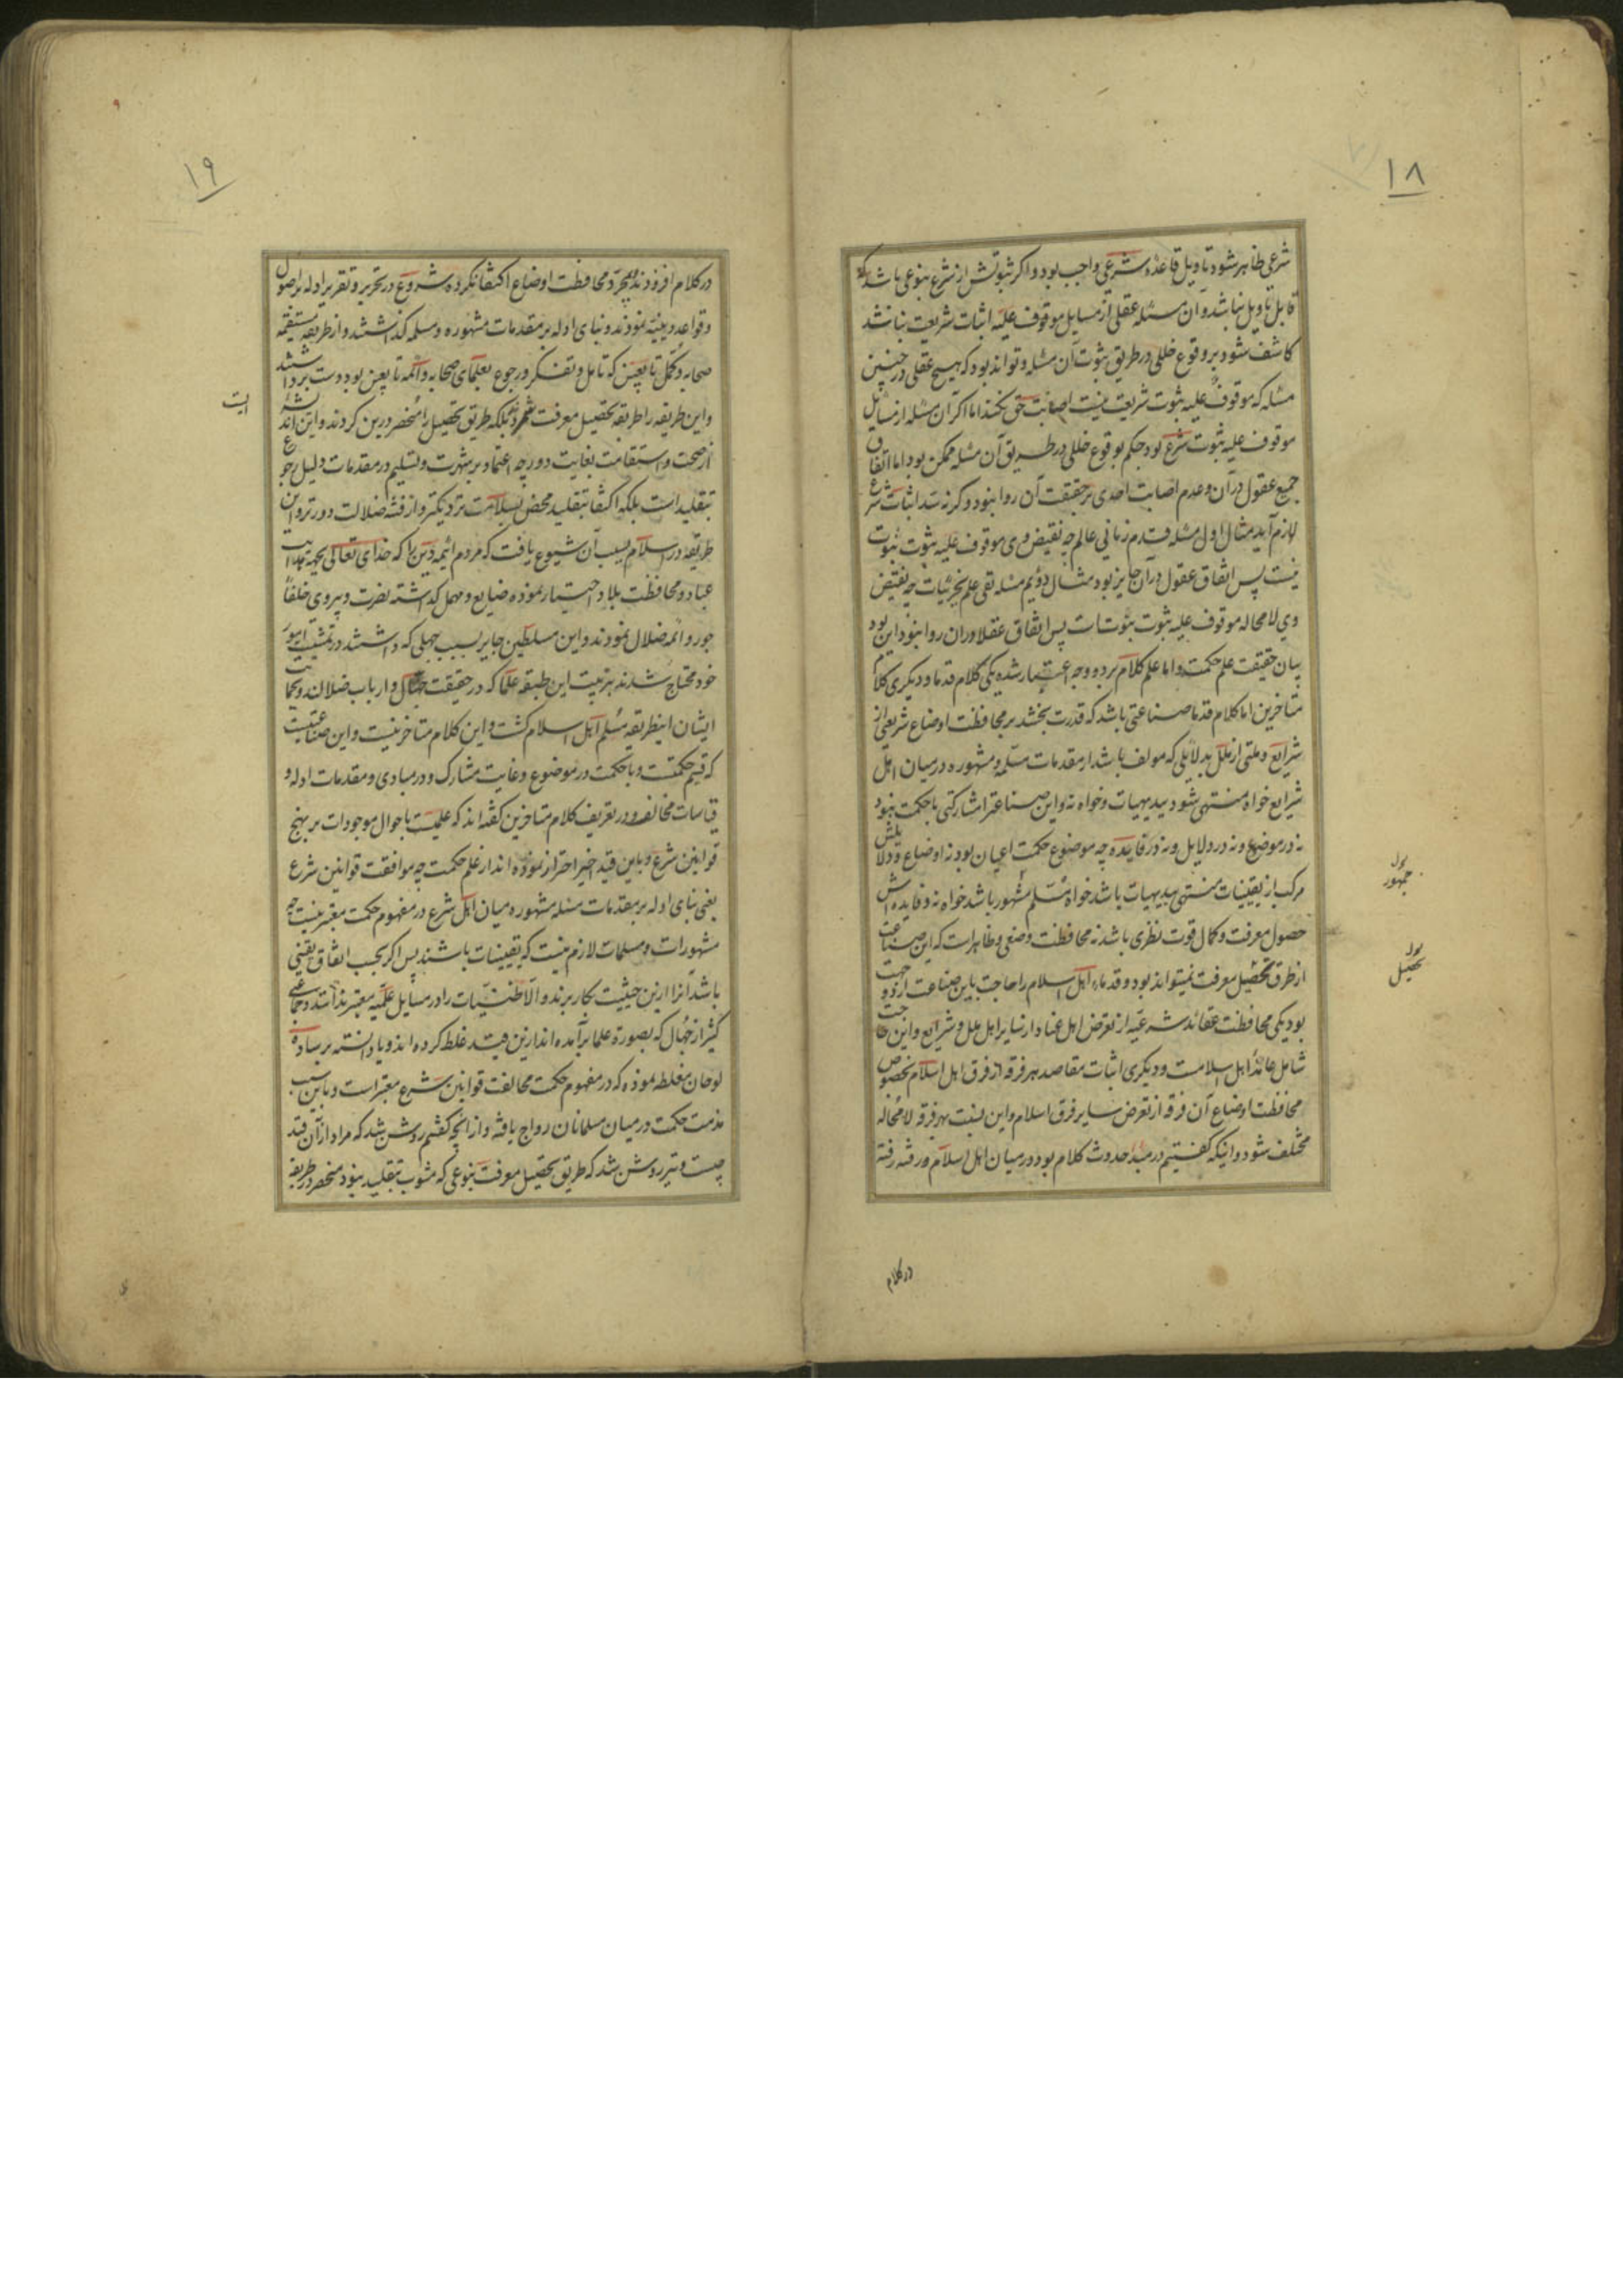 ۱۸
شرعی ظاهر شود تاویل قاعدهٔ شرعی واجب بود و اکر ثبوتش از شرع بنوعی باشد که
قابل تاویل نباشد و آن مسئله عقلی از مسایل موقوف علیه اثبات شریعت نباشد
کاشف شود بر وقوع خللی در طریق ثبوت آن مسئله و تواند بود که هیچ عقلی در چنین
مسئله که موقوف علیه ثبوت شریعت نیست اصابت حق نکند اما اکر آن مسئله از مسایل
موقوف علیه ثبوت شرع بود حکم بوقوع خللی در طریق آن مسئله ممکن بود اما اتفاق
جمیع عقول در آن و عدم اصابت احدی بر حقیقت آن روا نبود و کرنه سد اثبات شرع
لازم آید مثال اول مسئله قدم زمانی عالم چه نقیض وی موقوف علیه ثبوت نبوت
نیست پس اتفاق عقول در ان جایز بود مثال دوئیم مسئله نفی علم بجزئیات چه نقیض
وی لامحاله موقوف علیه ثبوت نبوتست پس اتفاق عقلا در ان روا نبود این بود
بیان حقیقت علم حکمت و اما علم کلام بر دو وجه اعتبار شده یکی کلام قدما و دیکری کلام
متاخرین اما کلام قدما صناعتی باشد که قدرت بخشد بر محافظت اوضاع شریعتی از
شرایع و ملتی از ملل بدلایلی که مولف باشد از مقدمات مسلمه و مشهوره در میان اهل
شرایع خواه منتهی شود ببدیهیات و خواه نه و این صناعترا مشارکتی با حکمت نبود
نه در موضوع و نه در دلایل و نه در فایده چه موضوع حکمت اعیان بود نه اوضاع و دلایلش
مرکب از یقینیات منتهی ببدیهیات باشد خواه مسلم مشهور باشد خواه نه و فایده اش
حصول معرفت و کمال قوت نظری باشد نه محافظت وضعی و ظاهر است که این صناعت
از طرق تحصیل معرفت نمیتواند بود و قدماء اهل اسلام را حاجت باین صناعت از دو جهت
بود یکی محافظت عقائد شرعیه از تعرض اهل عناد از سایر اهل ملل و شرایع و این حاجت
شامل عامهٔ اهل اسلامست و دیکری اثبات مقاصد هر فرقه از فرق اهل اسلام بخصوص
محافظت اوضاع آن فرقه از تعرض سایر فرق اسلام و این نسبت بهر فرقه لامحاله
مختلف شود و اینکه کفتیم در مبدا حدوث کلام بود در میان اهل اسلام و رفته رفته
در کلام
جمهور
تحصیل
۱۹
در کلام افزودند و بمجرد محافظت اوضاع اکتفا نکرده شروع در تحریر و تقریر ادله بر اصول
و قواعد دینیه نمودند و بنای ادله بر مقدمات مشهوره و مسلمه کذاشتند و از طریقه مستقیمه
صحابه و کمل تابعین که تامل و تفکر و رجوع بعلمای صحابه و ائمه تابعین بود دست برداشتند
و این طریقه را طریقه تحصیل معرفت شمردند بلکه طریق تحصیل را منحصر درین کردند و این اندیشه
از صحت و استقامت بغایت دور چه اعتماد بر شهرت و تسلیم در مقدمات دلیل رجوع
بتقلید است بلکه اکتفا بتقلید محض بسلامت نزدیکتر و از فتنه ضلالت دورتر و این
طریقه در اسلام بسبب آن شیوع یافت که مردم ائیمه دین را که خدای تعالی بجهة هدایت
عباد و محافظت بلاد اختیار نموده ضایع و مهمل کذاشته نصرت و پیروی خلفاء
جور و ائمه ضلال نمودند و این سلاطین جایر بسبب جهلی که داشتند در تمشیت امور
خود محتاج شدند بتربیت این طبقه علما که در حقیقت جهال و ارباب ضلالند و بحمایت
ایشان اینطریقه مسلم اهل اسلام کشت و این کلام متاخرینست و این صناعتیست
که قسیم حکمتست و با حکمت در موضوع و غایت مشارک و در مبادی و مقدمات ادله و
قیاسات مخالف و در تعریف کلام متاخرین کفته اند که علمیست باحوال موجودات بر نهج
قوانین شرع و باین قید اخیر احتراز نموده اند از علم حکمت چه موافقت قوانین شرع
یعنی بنای ادله بر مقدمات مسلمه مشهوره میان اهل شرع در مفهوم حکمت معتبر نیست چه
مشهورات و مسلمات لازم نیست که یقینیات باشند پس اکر بحسب اتفاق یقینی
باشد آنرا ازین حیثیت بکار برند و الا ظنیات را در مسایل علمیه معتبر ندانند و جماعتی
کثیر از جهال که بصورة علما برآمده اند ازین قید غلط کرده اند و یا دانسته بر ساده
لوحان مغلطه نموده که در مفهوم حکمت مخالفت قوانین شرع معتبر است و باین سبب
مذمت حکمت در میان مسلمانان رواج یافته و از انچه کفتیم روشن شد که مراد از آن قید
چیست و نیز روشن شد که طریق تحصیل معرفت بنوعی که مشوب بتقلید نبود منحصر در طریقه